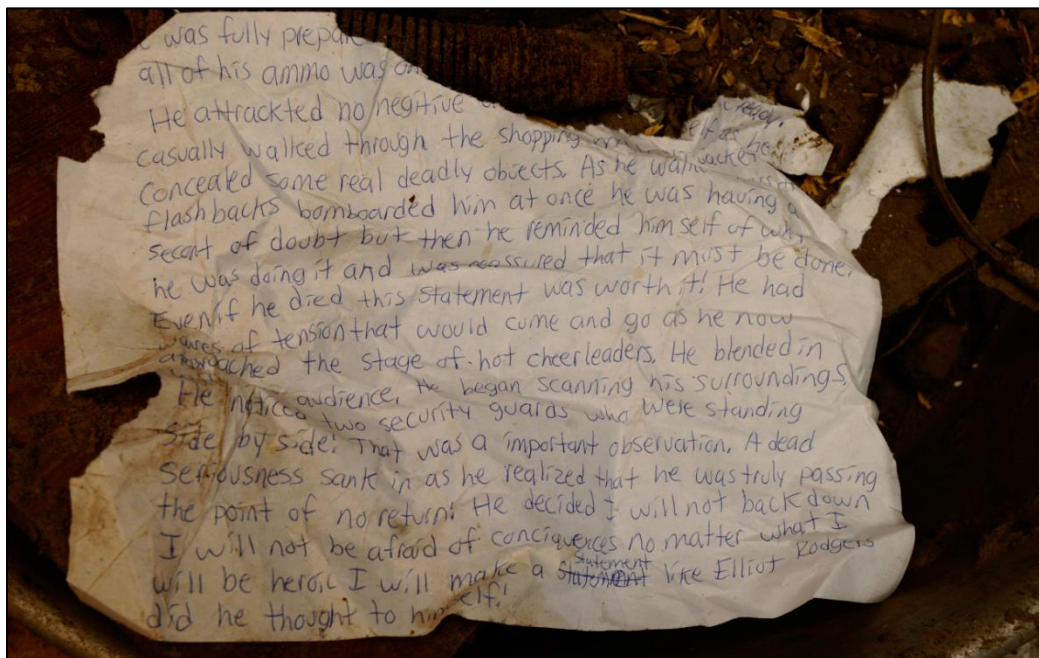 was fully prepare
all of his ammo was on
He attrackted no negitive
casually walked through the shopping
concealed some real deadly objects. As he wal
flashbacks bomboarded him at once he was having a
secont of doubt but then he reminded him self of
he was doing it and was reassured that it must be done.
Even if he died this statement was worth it! He had
waves of tension that would cume and go as he now
approached the stage of hot cheerleaders. He blended in
audience. He began scanning his surroundings.
He noticed two security guards who were standing
side by side! That was a important observation. A dead
seriousness sank in as he realized that he was truly passing
the point of no return! He decided I will not back down
I will not be afraid of conciquences no matter what I
will be heroic I will make a statement like Elliot Rodgers
did he thought to himself!